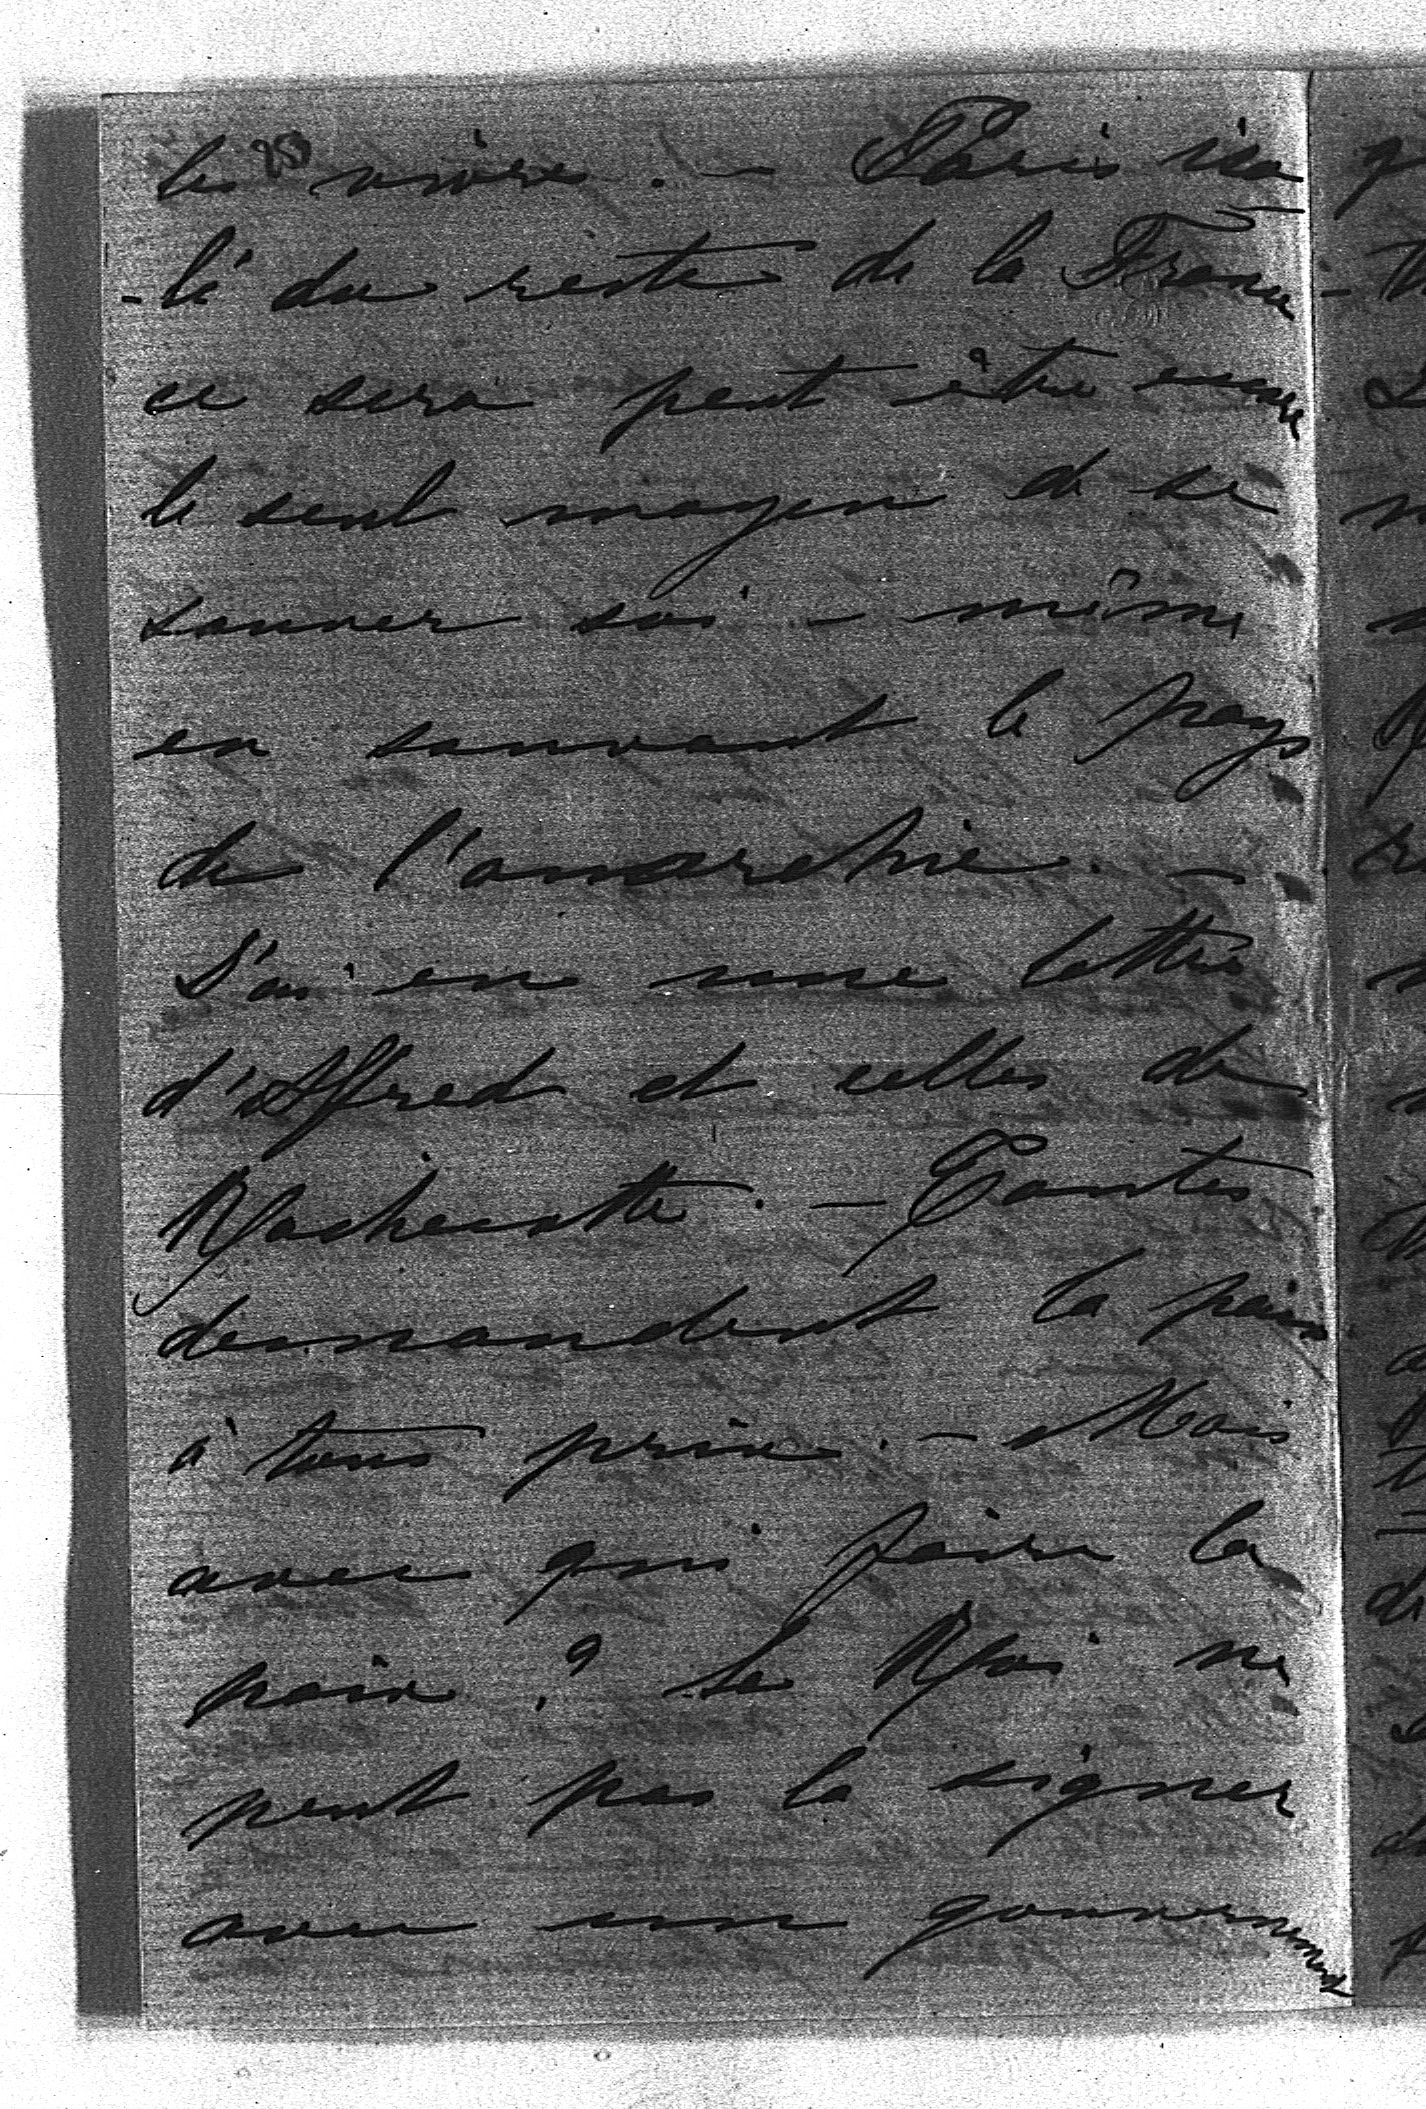 les vivre. – Paris iso
-lé du reste de la France
ce sera peut être encore
le seul moyen de se
sauver soi-même
en sauvant le pays
de l'anarchie. –
J'ai eu une lettre
d'Alfred et celles de
Rochecotte. – Toutes
demandent la paix
à tous prix. – Mais
avec qui faire la
paix? Le Roi ne
peut pas la signer
avec un gouvernement